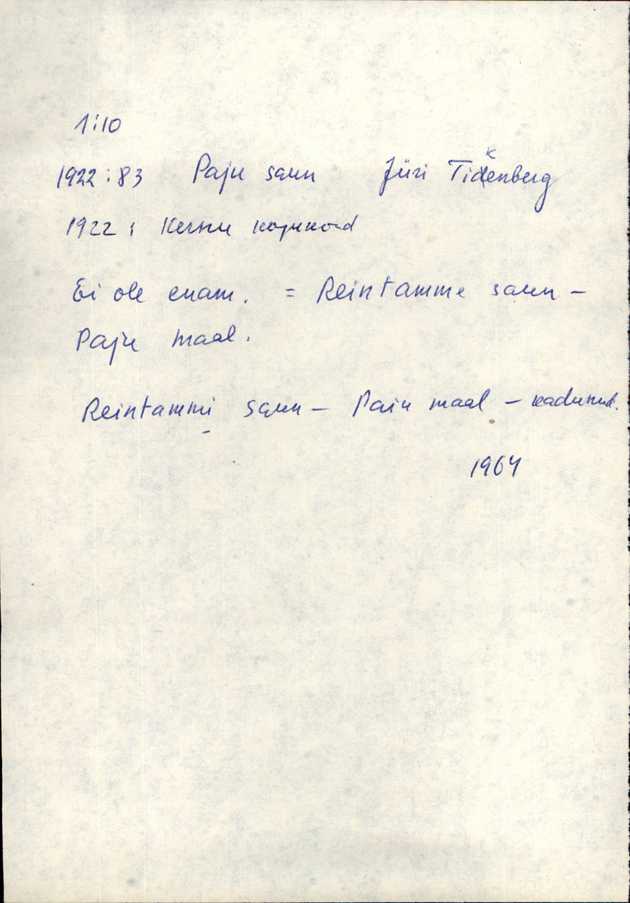 1:10
1922:83 Paju saun Jüri Tidenberg
1922: Kernu
Ei ole enam. = Reintamme saun –
Paju maal.
Reintammi saun – Paju maal – kadunud.
1964